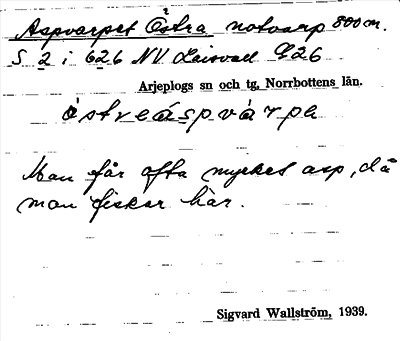 Aspvarpet Östra notvarp 800 m.
S 2 i 626 NV Laisvall 926
Arjeplogs sn och tg, Norrbottens län.
östreáspvàrpe
Man får ofta mycket asp, då
man fiskar här.
Sigvard Wallström, 1939.